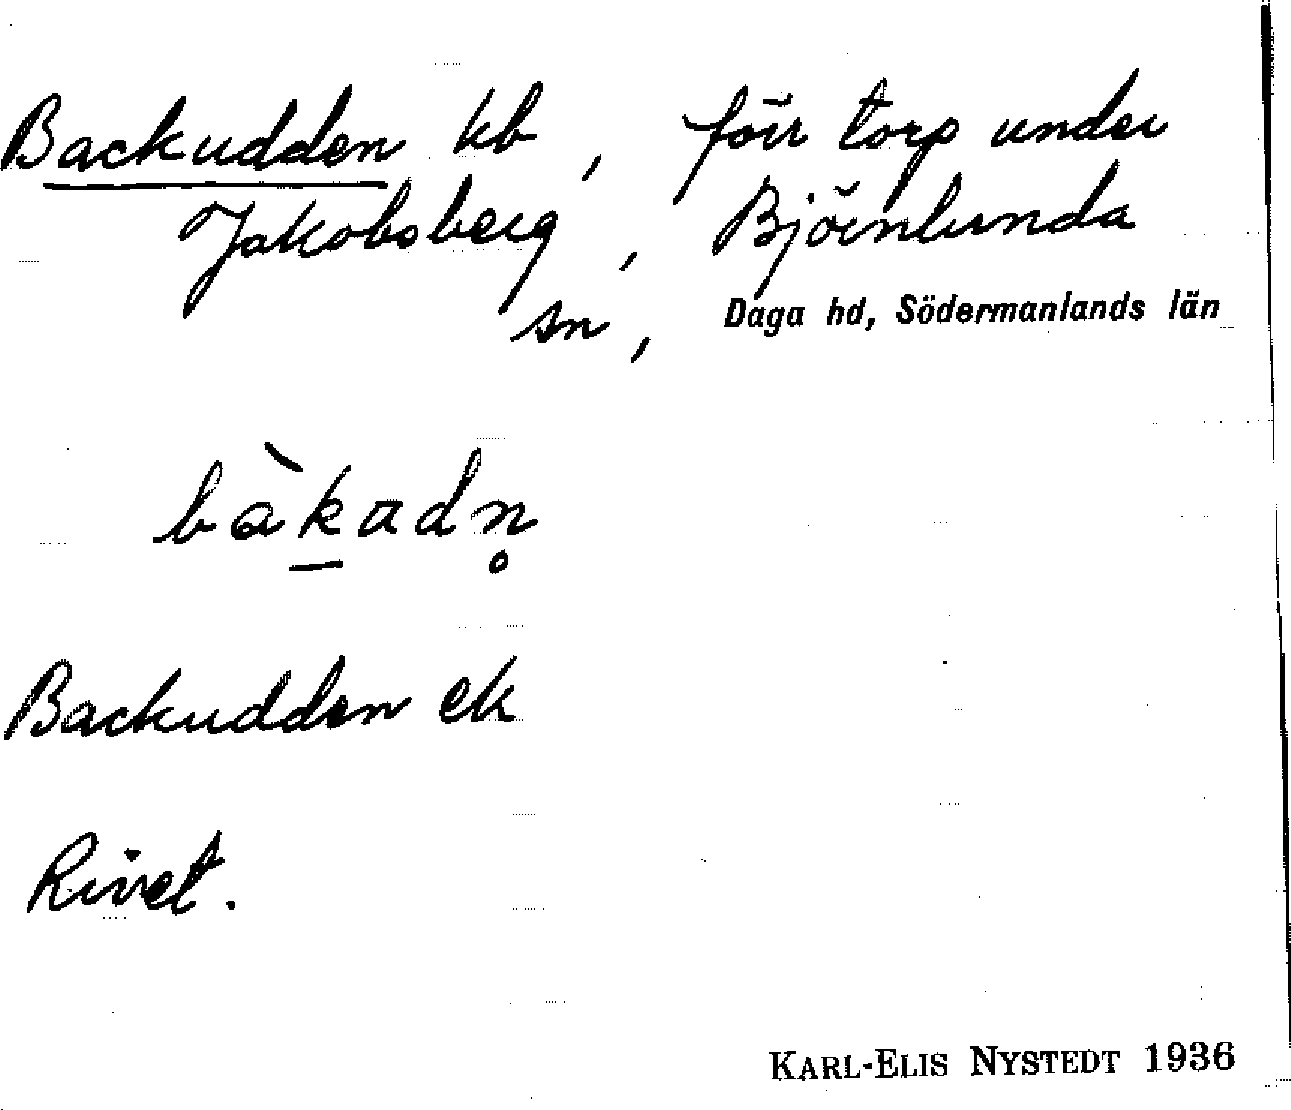 Backudden kb, förr torp under
Jakobsberg, Björnlunda
sn, Daga hd, Södermanlands län
bàk̲adn̥
Backudden ek
Rivet.
KARL-ELIS NYSTEDT 1936